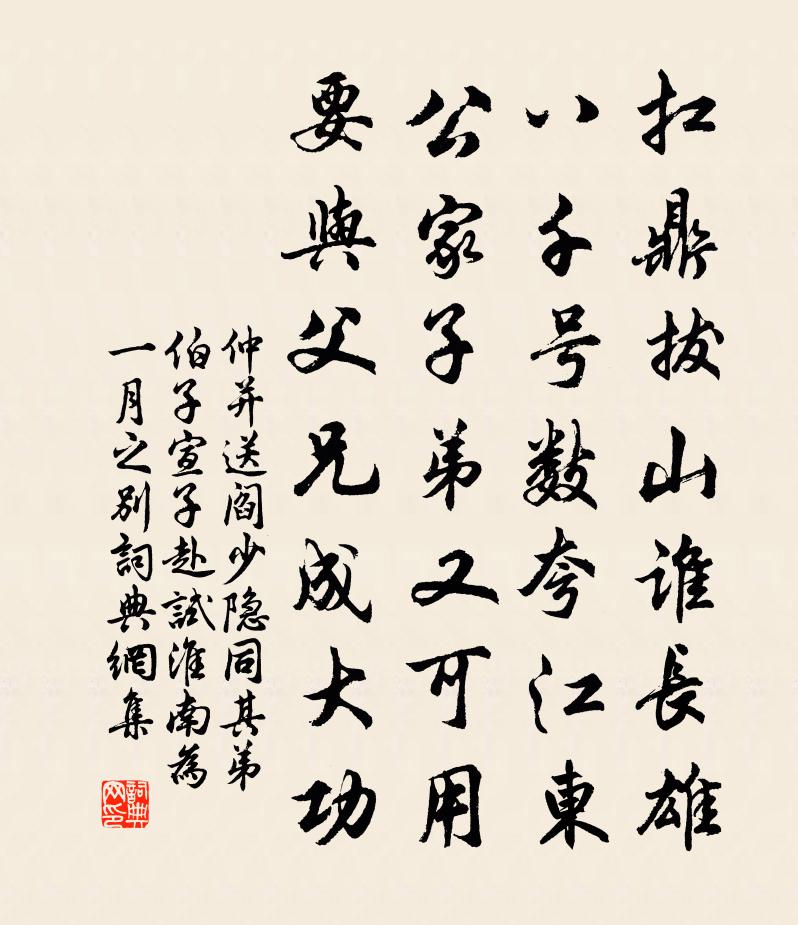 扛鼎拔山谁長雄
八千号数夸江東
公家子弟又可用
要與父兄成大功
仲并送阎少隐同其弟
伯子宣子赴試淮南為
一月之别詞典網集
詞典网印